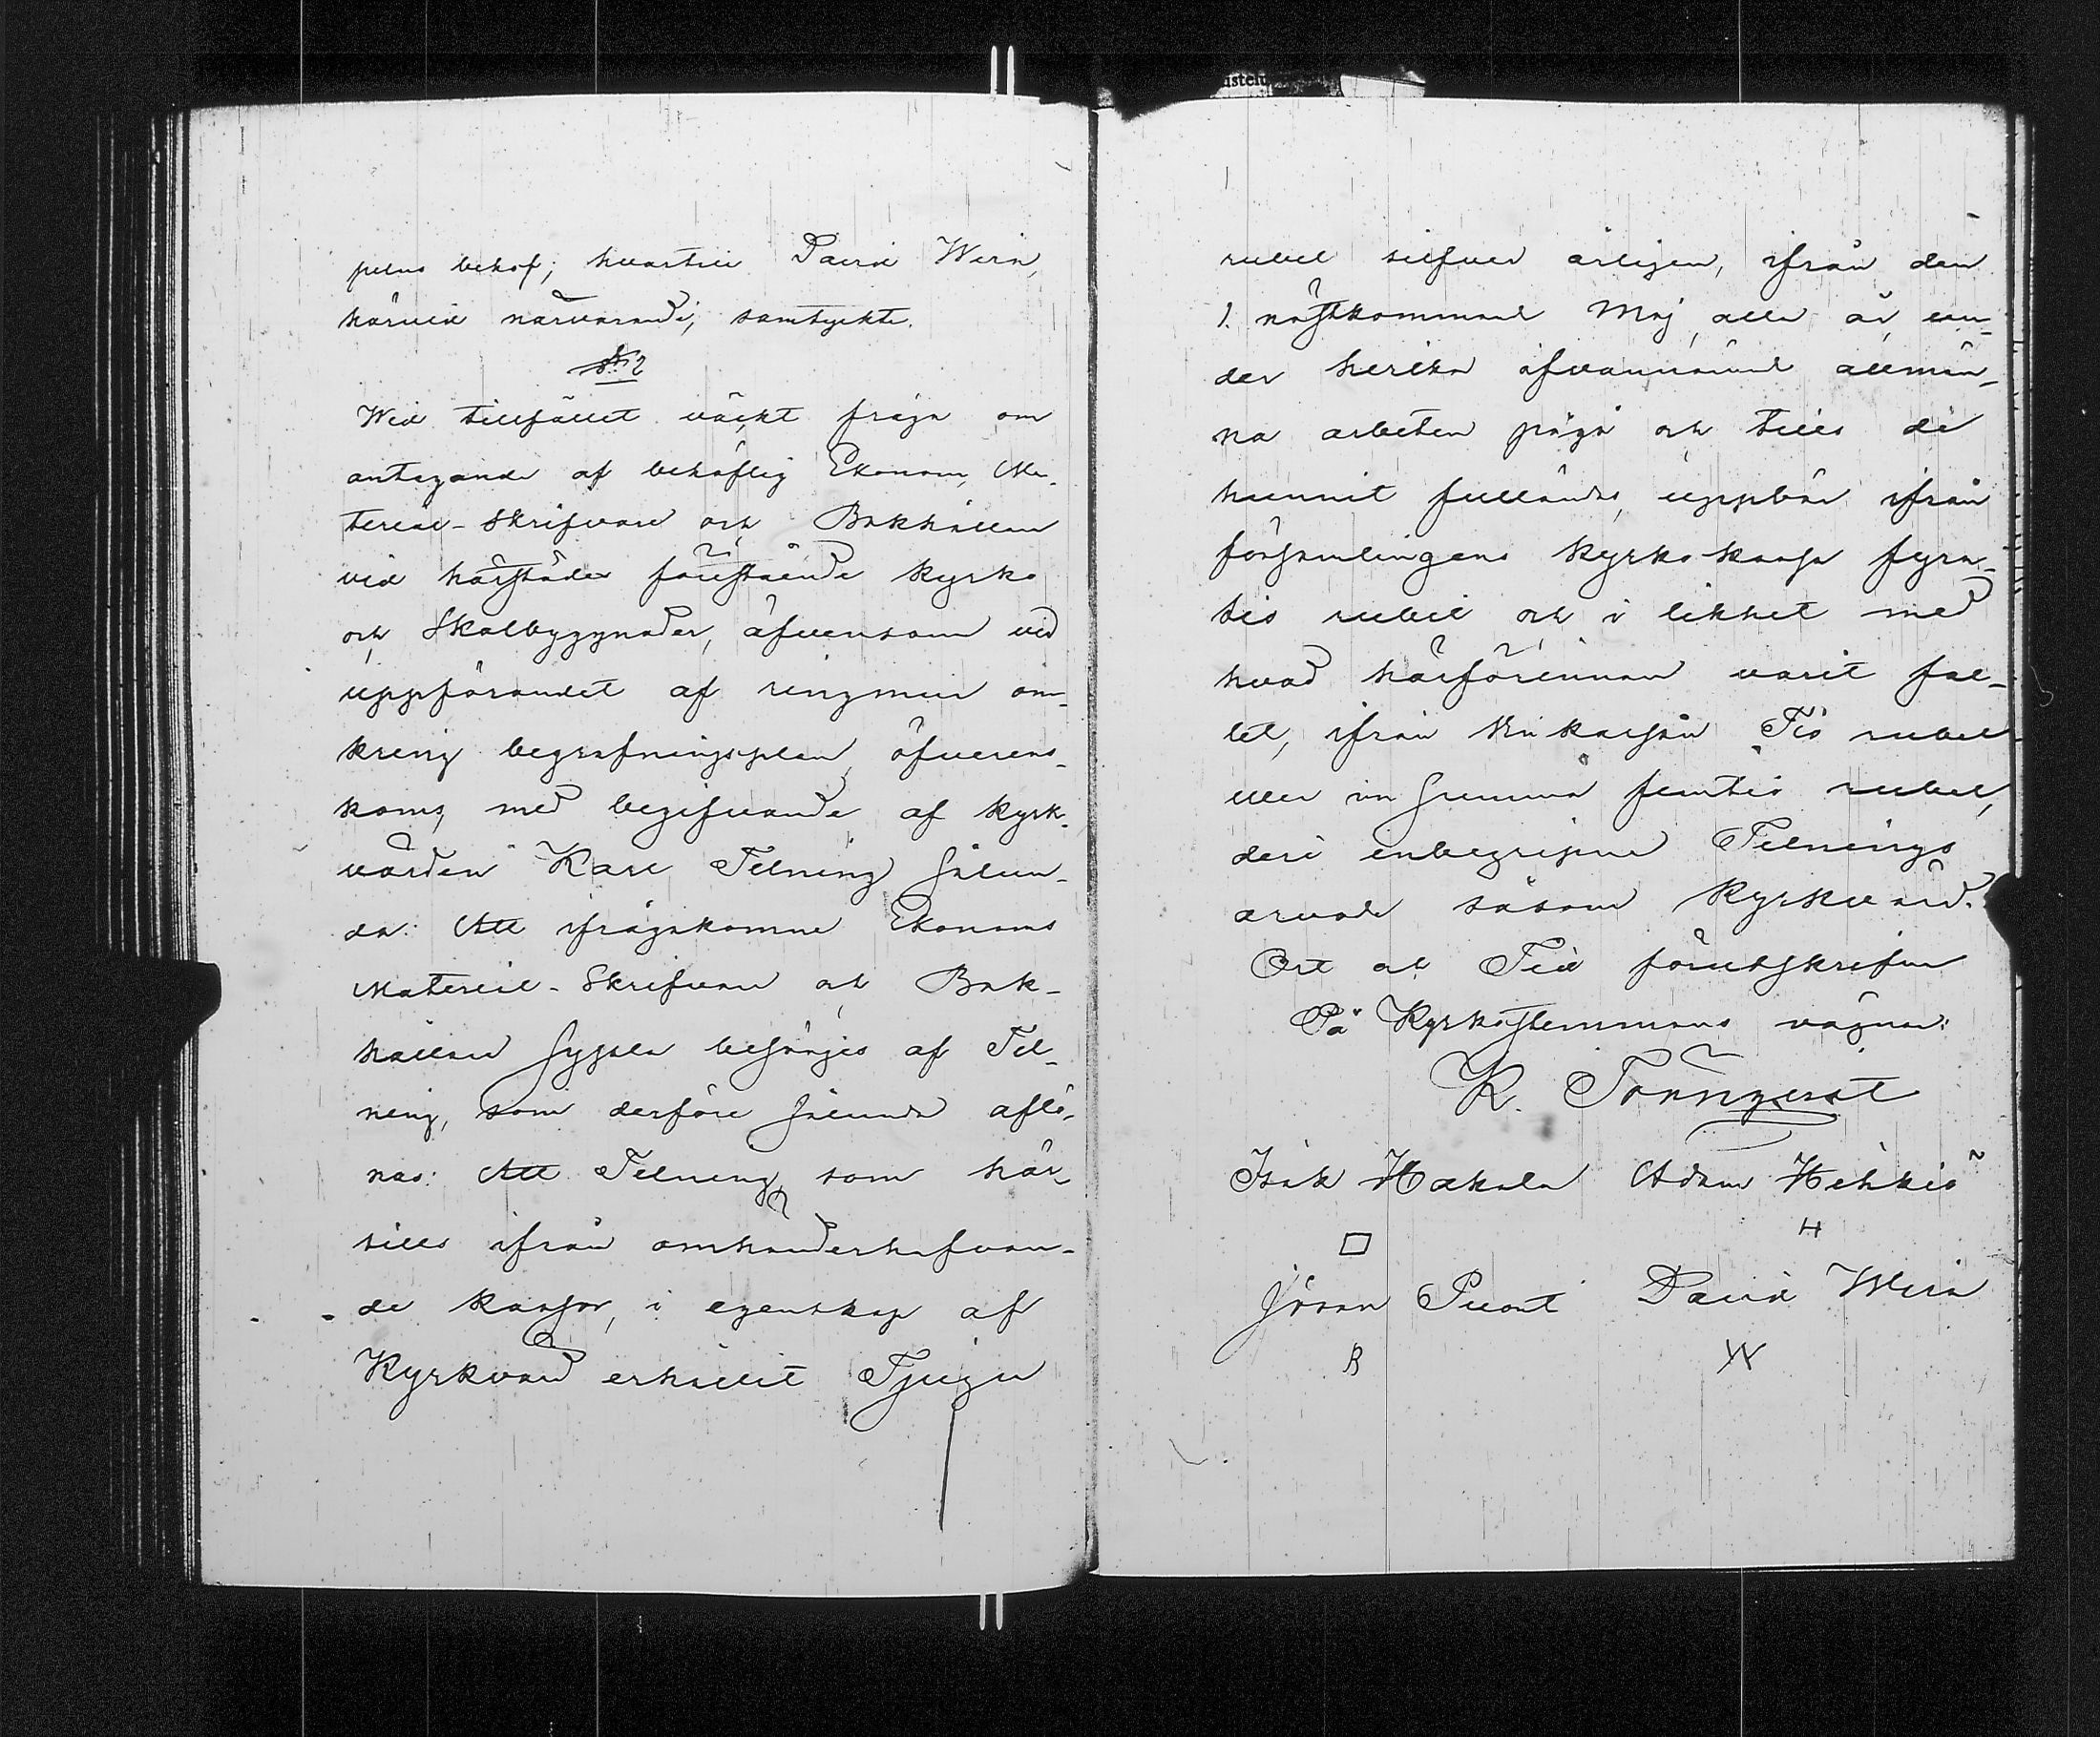 pelns behof; hvartill David Wirn,
härvid närvarande, samtyckte.
§ 2
Wid tillfället väckt fråga om
antagande af behöflig Ekonom, Ma-
terial-Skrifvare och Bokhållare
vid härstädes förestående kyrko
och Skolbyggnader, äfvensom vid
uppförandet af ringmur om-
kring begrafningsplan, öfverens-
koms, med begifvande af kyrk-
värden Karl Telning sålun-
da: Att ifrågakomne Ekonoms
Material-Skrifvare och Bok-
hållare syssla besörjes af Tel-
ning, som derföre sålunda aflö-
nas: Att Telning, som här-
tills ifrån omhänderhafvan-
de kassor, i egenskap af
Kyrkvärd erhållit Tjugu
rubel silfver årligen, ifrån den
1. nästkommande Maj, alla år, un-
der hvilka ofvannämnde allmän-
na arbeten pågå och tills de
hunnit fulländas, uppbär ifrån
församlingens kyrko kassa fyra-
tio rubel och i likhet med
hvad härförinnan varit fal-
let, ifrån Tio rubel
eller in summa femtio rubel,
deri inbegripne Telnings
arvode såsom Kyrkvärd.
Ort och Tid förutskrifne
På Kyrkostemmans vägnar:
K. Törnqvist
Isak Hakala Adam Heikkis
H
Jöran Puont David Wirn
B W